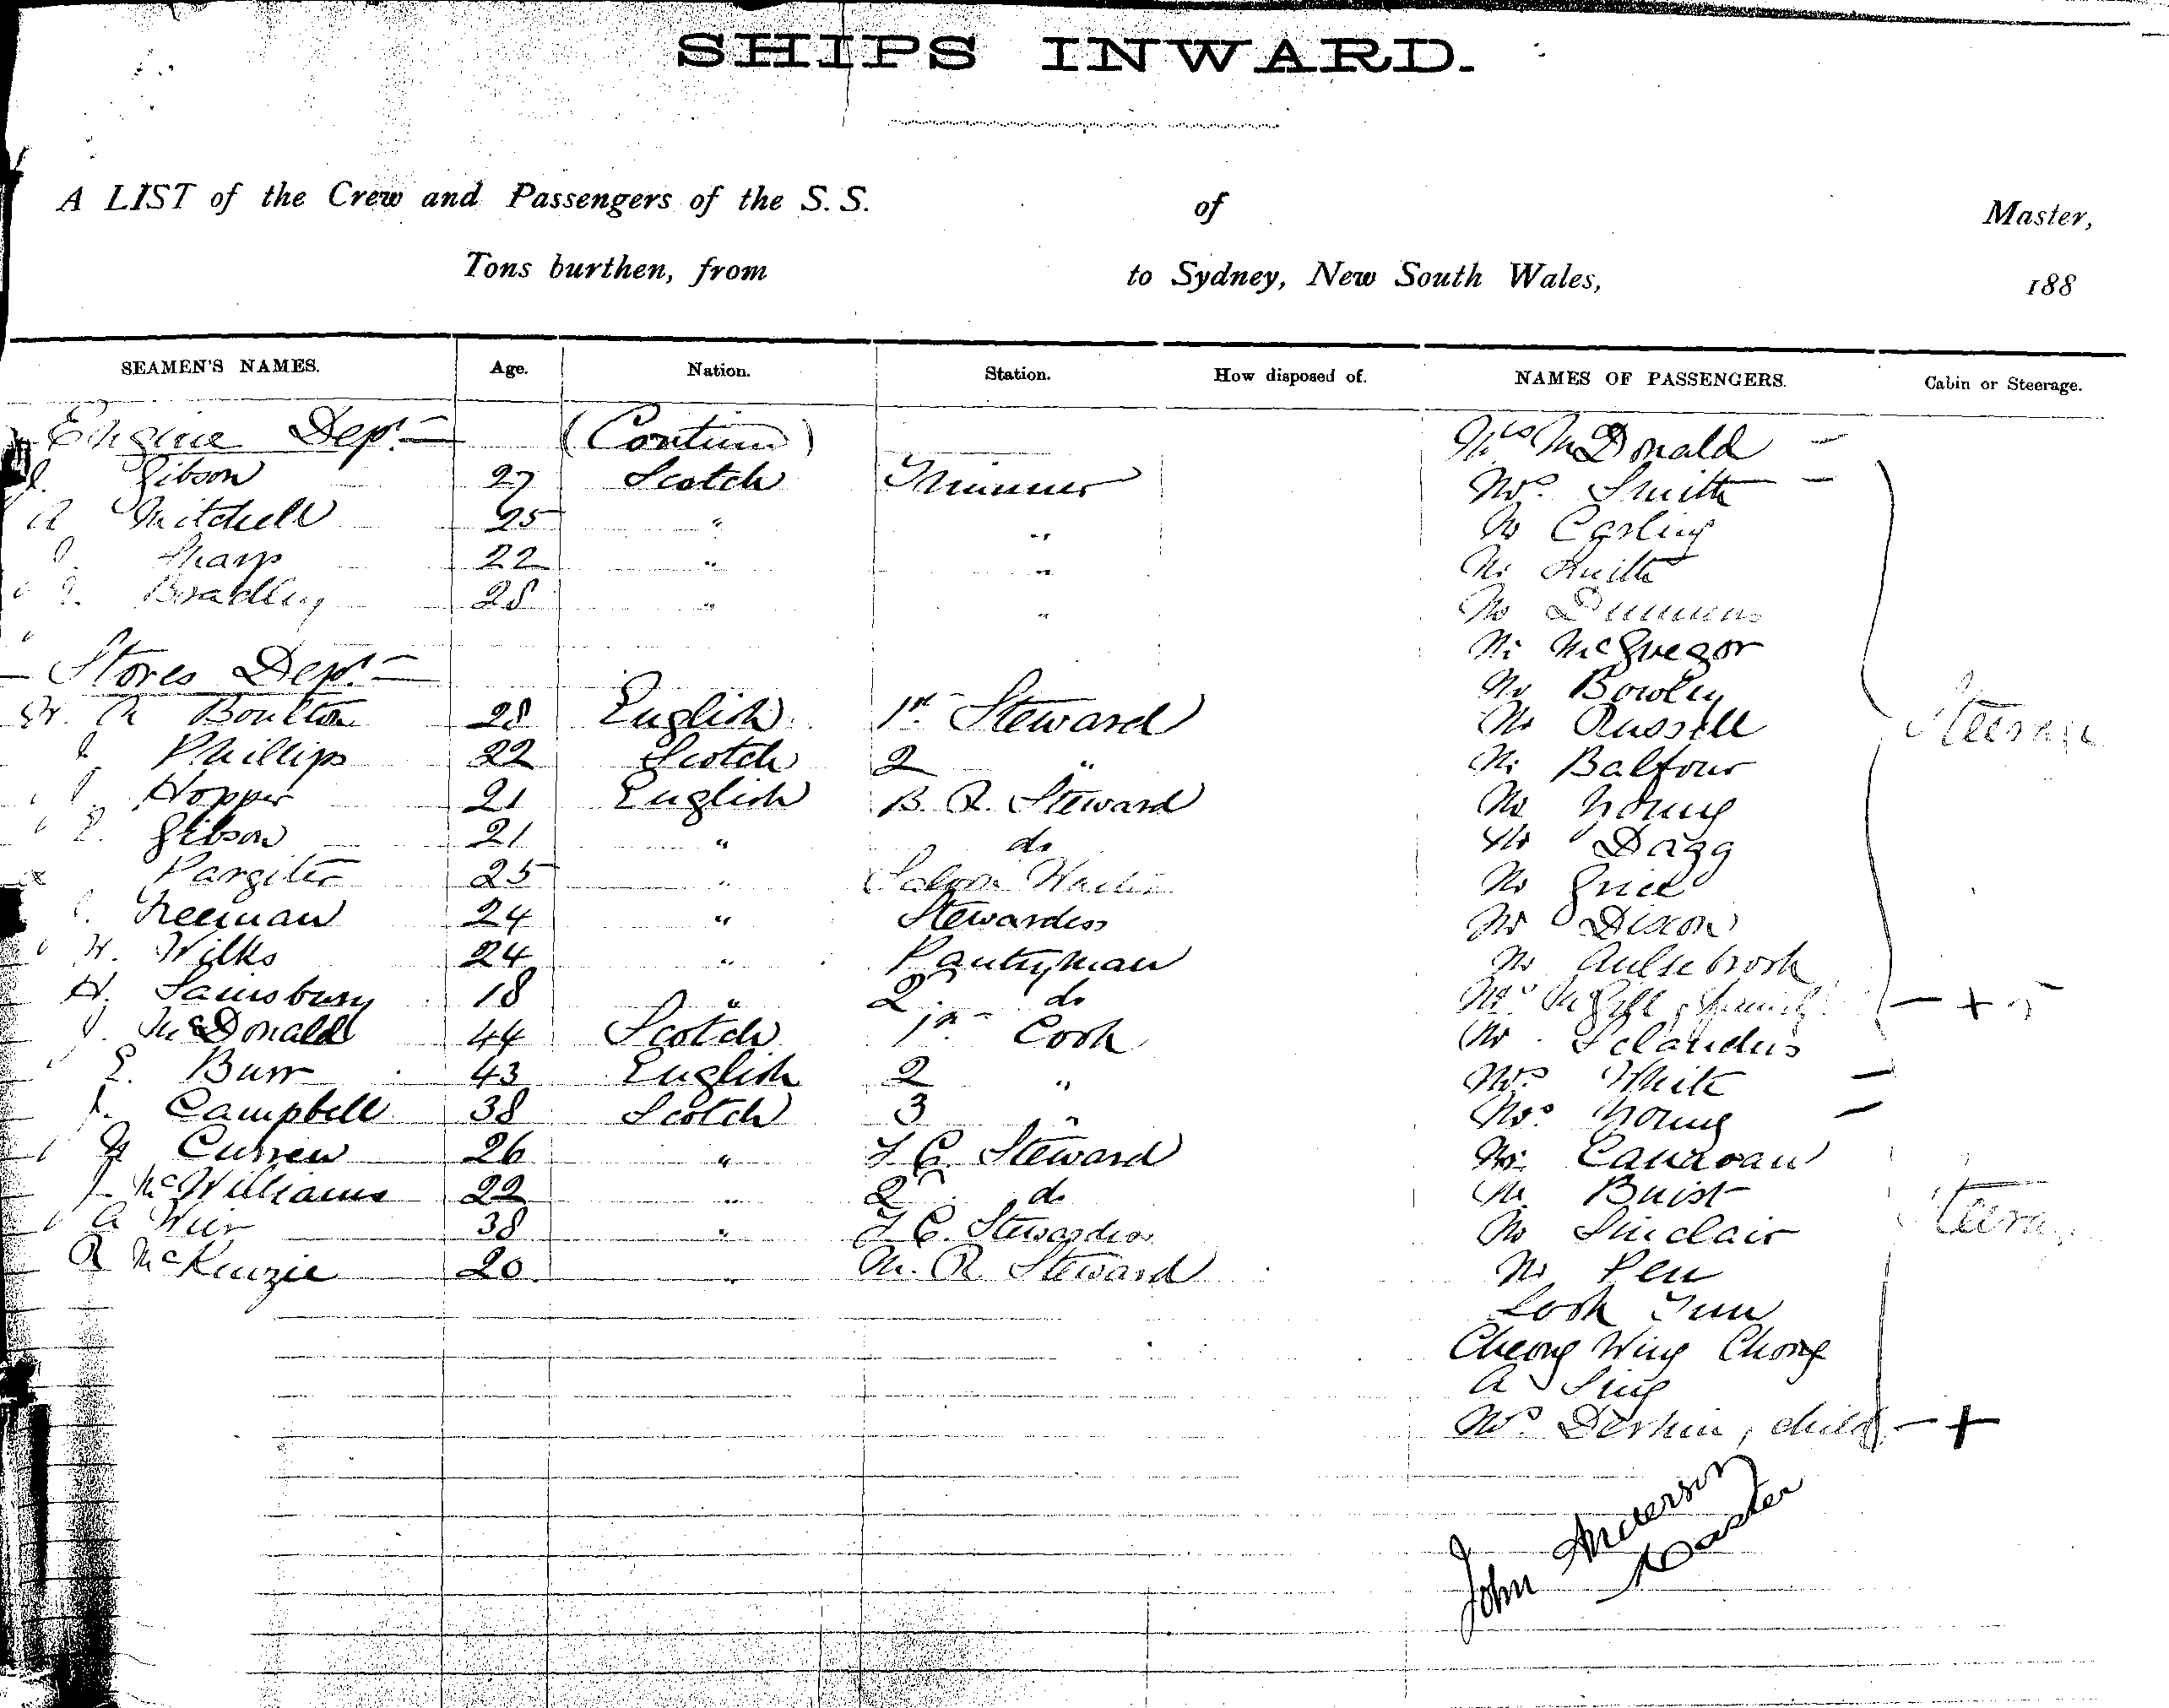 SHIPS INWARD.
A LIST of the Crew and Passengers of the S.S. of Master,
Tons burthen, from to Sydney, New South Wales, 188
SEAMEN'S NAMES. Age. Nation. Station. How disposed of. NAMES OF PASSENGERS. Cabin or Steerage.
Engine Dept. (Contin) McDonald –
J. Gibson 27 Scotch Trimmer Mrs. Smith –
A Mitchell 25 " " Mr Carling
Sharp 22 " " Mr Smith
Bradley 28 " " Mr
Mr McGregor
– Stores Dept. – Mr Bowley
W. A Boulton 28 English 1st Steward Mr Russell Steerage
Phillips 22 Scotch 2 " Mr Balfour
Hopper 21 English B. R. Steward Mr Young
Gibson 21 " do Mr Dagg
Pargiter 25 " Saloon Waiter Mr Grice
Freeman 24 " Stewardess Mr Dixon
W. Wilks 24 " Pantryman Mr Aulsebrook
H. Sainsbury 18 " 2 do Mrs McGill – + 5
J. McDonald 44 Scotch 1st Cook Mr
E. Burr 43 English 2 " Mrs White –
J. Campbell 38 Scotch 3 " Mrs Young –
Curren 26 " F C. Steward Mr Canavan
J. McWilliams 22 " 2 do Mr Buist
A Weir 38 " F C. Stewardess Mr Sinclair
R McKenzie 20 " M. R Steward Mr Pen
Look
Cheong Wing Chong
A Sing
Mrs. Durkin, child – +
John Anderson
Master